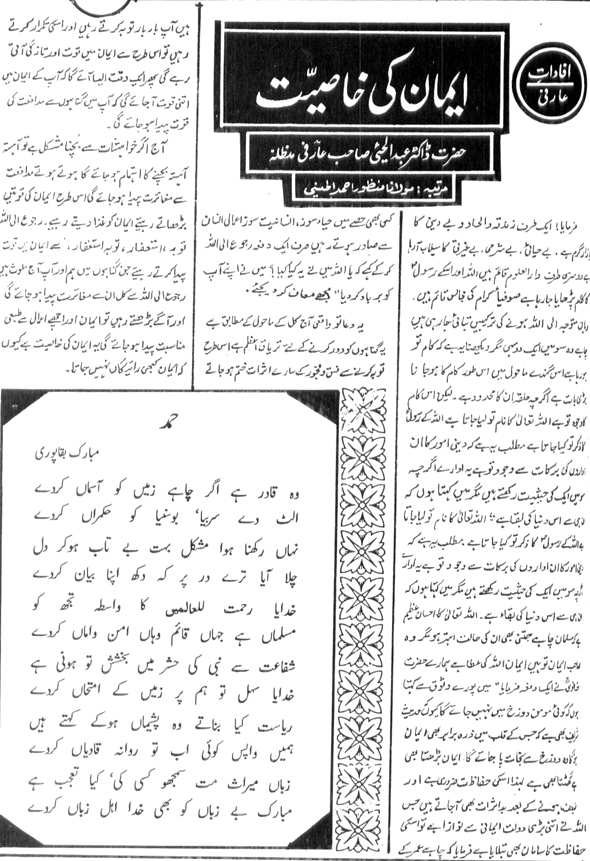 افادات
عارفی
ایمان کی خاصیّت
حضرت ڈاکٹر عبدالحئی صاحب عارفی مدظلہٗ
مرتبہ: مولانا منظور احمد الحسینی
فرمایا: ایک طرف زندقہ و الحاد و بے دینی کا
بازار گرم ہے۔ بے حیائی، بے شرمی، بے غیرتی کا سیلاب آرہا
ہے دوسری طرف دارالعلوم قائم ہیں اللہ اور اسکے رسولؐ
کا کلام پڑھایا جارہا ہے صوفیأ کرام کی مجالس قائم ہیں۔
وہاں متوجہ الی اللہ ہونے کی ترکیبیں بتائی جارہی ہیں
چاہے وہ سو میں ایک دو ہیں مگر دیکھنا یہ ہے کہ کام تو
ہورہا ہے اس گندے ماحول میں اس طور کام کا ہوجانا
بڑی بات ہے اگرچہ حلقہ ان کا محدود ہے۔ لیکن اس کام
کا وجود تو ہے اللہ تعالیٰ کا نام تو لیا جاتا ہے اللہ کے رسولؐ
کا ذکر تو کیا جاتا ہے مطلب یہ ہے کہ دینی امور کا ان
اداروں کی برکات سے وجود تو ہے یہ ادارے اگرچہ
سو میں ایک کی حیثیت رکھتے ہیں مگر میں کہتا ہوں کہ
انہی سے اس دنیا کی بقا ہے۔ اللہ تعالیٰ کا نام تو لیا جاتا
ہے اللہ کے رسولؐ کا ذکر تو کیا جاتا ہے مطلب یہ ہے کہ
دینی امور کا ان اداروں کی برکات سے وجود تو ہے یہ ادارے
سو میں ایک کی حیثیت رکھتے ہیں مگر میں کہتا ہوں کہ
انہی سے اس دنیا کی بقاء ہے۔ اللہ تعالیٰ کا احسان عظیم
ہے کہ مسلمان چاہے جتنی بھی ان کی حالت ابتر ہو مگر وہ
صاحب ایمان تو ہیں ایمان اللہ کی عطا ہے ہمارے حضرت
تھانویؒ نے ایک دفعہ فرمایا "میں پورے وثوق سے کہتا
ہوں کہ کوئی مومن دوزخ میں نہیں جائے گا کیونکہ حدیث
شریف بھی ہے کہ جس کے قلب میں ذرہ برابر بھی ایمان
ہوگا وہ دوزخ سے نجات پا جائے گا۔ ایمان بڑھتا بھی
ہے گھٹتا بھی ہے لہذا اسکی حفاظت ضروری ہے اور
ضعیف ہونے کے بعد بداثرات بھی آجاتے ہیں جس
اللہ نے اتنی بڑی دولت ایمانی سے نوازا ہے تو اسکی
حفاظت کا سامان بھی بتلایا ہے فرمایا کہ چاہے عمر کے
کسی بھی حصے میں حیاء سوز، انسانیت سوز اعمالی انسان
سے صادر ہوتے رہیں صرف ایک دفعہ رجوع الی اللہ
کرکے کہے کہ یا اللہ میں نے یہ کیا کیا؟ میں نے اپنے آپ
کو برباد کردیا "مجھے معاف کر دیجئے"۔
یہ دعا تو واقعی آج کل کے ماحول کے مطابق ہے
یہ گناہوں کو دور کرنے کے لئے تریاق اعظم ہے اسی طرح
توبہ کرنے سے فسق و فجور کے سارے اثرات ختم ہو جاتے
ہیں آپ بار بار توبہ کرتے رہیں اور اسکی تکرار کرتے
رہیں تو اس طرح سے ایمان میں قوت اور تازگی آتی
رہے گی پھر ایک وقت ایسا آئے گا کہ آپ کے ایمان میں
اتنی قوت آجائے گی کہ آپ میں گناہوں سے مدافعت کی
قوت پیدا ہو جائے گی۔
آج اگر خواہشات سے بچنا مشکل ہے تو آہستہ
آہستہ بچنے کا اہتمام ہو جائے گا ہوتے ہوتے مدافعت
سے مغائرت پیدا ہو جائے گی اس طرح ایمان کی قوتیں
بڑھاتے رہیئے ایمان کو غذا دیتے رہیے۔ رجوع الی اللہ
توبہ، استغفار، توبہ استغفار، سے ایمان میں قوت
پیدا کرتے رہیے جن گناہوں میں ہم اور آپ آج ملوث ہیں
رجوع الی اللہ سے کل ان سے مغائرت پیدا ہو جائے گی
اور آگے بڑھتے رہیں تو ایمان اور اچھے اعمال سے طبعی
مناسبت پیدا ہو جائے گی یہ ایمان کی خاصیت ہے کیوں
کہ ایمان کبھی رائیگاں نہیں جاتا۔
حمد
مبارک بقاپوری
وہ قادر ہے اگر چاہے زمیں کو آسماں کردے
الٹ دے سربیا' بوسنیا کو حکمراں کردے
نہاں رکھنا ہوا مشکل بہت بے تاب ہوکر دل
چلا آیا ترے در پر کہ دکھ اپنا بیاں کردے
خدایا رحمت للعالمیں کا واسطہ تجھ کو
مسلماں ہے جہاں قائم وہاں امن واماں کردے
شفاعت سے نبی کی حشر میں بخشش تو ہونی ہے
خدایا سہل تو ہم پر زمیں کے امتحاں کردے
ریاست کیا بناتے وہ پشیماں ہوکے کہتے ہیں
ہمیں واپس کوئی اب تو روانہ قادیاں کردے
زباں میراث مت سمجھو کسی کی' کیا تعجب ہے
مبارک بے زباں کو بھی خدا اہل زباں کردے